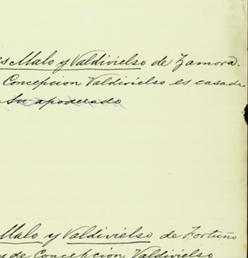 Malo y Valdivielso de Zamora.
Concepcion Valdivielso es casada
Su apoderado
Malo y Valdivielso de Fortuño
y de Concepcion Valdivielso